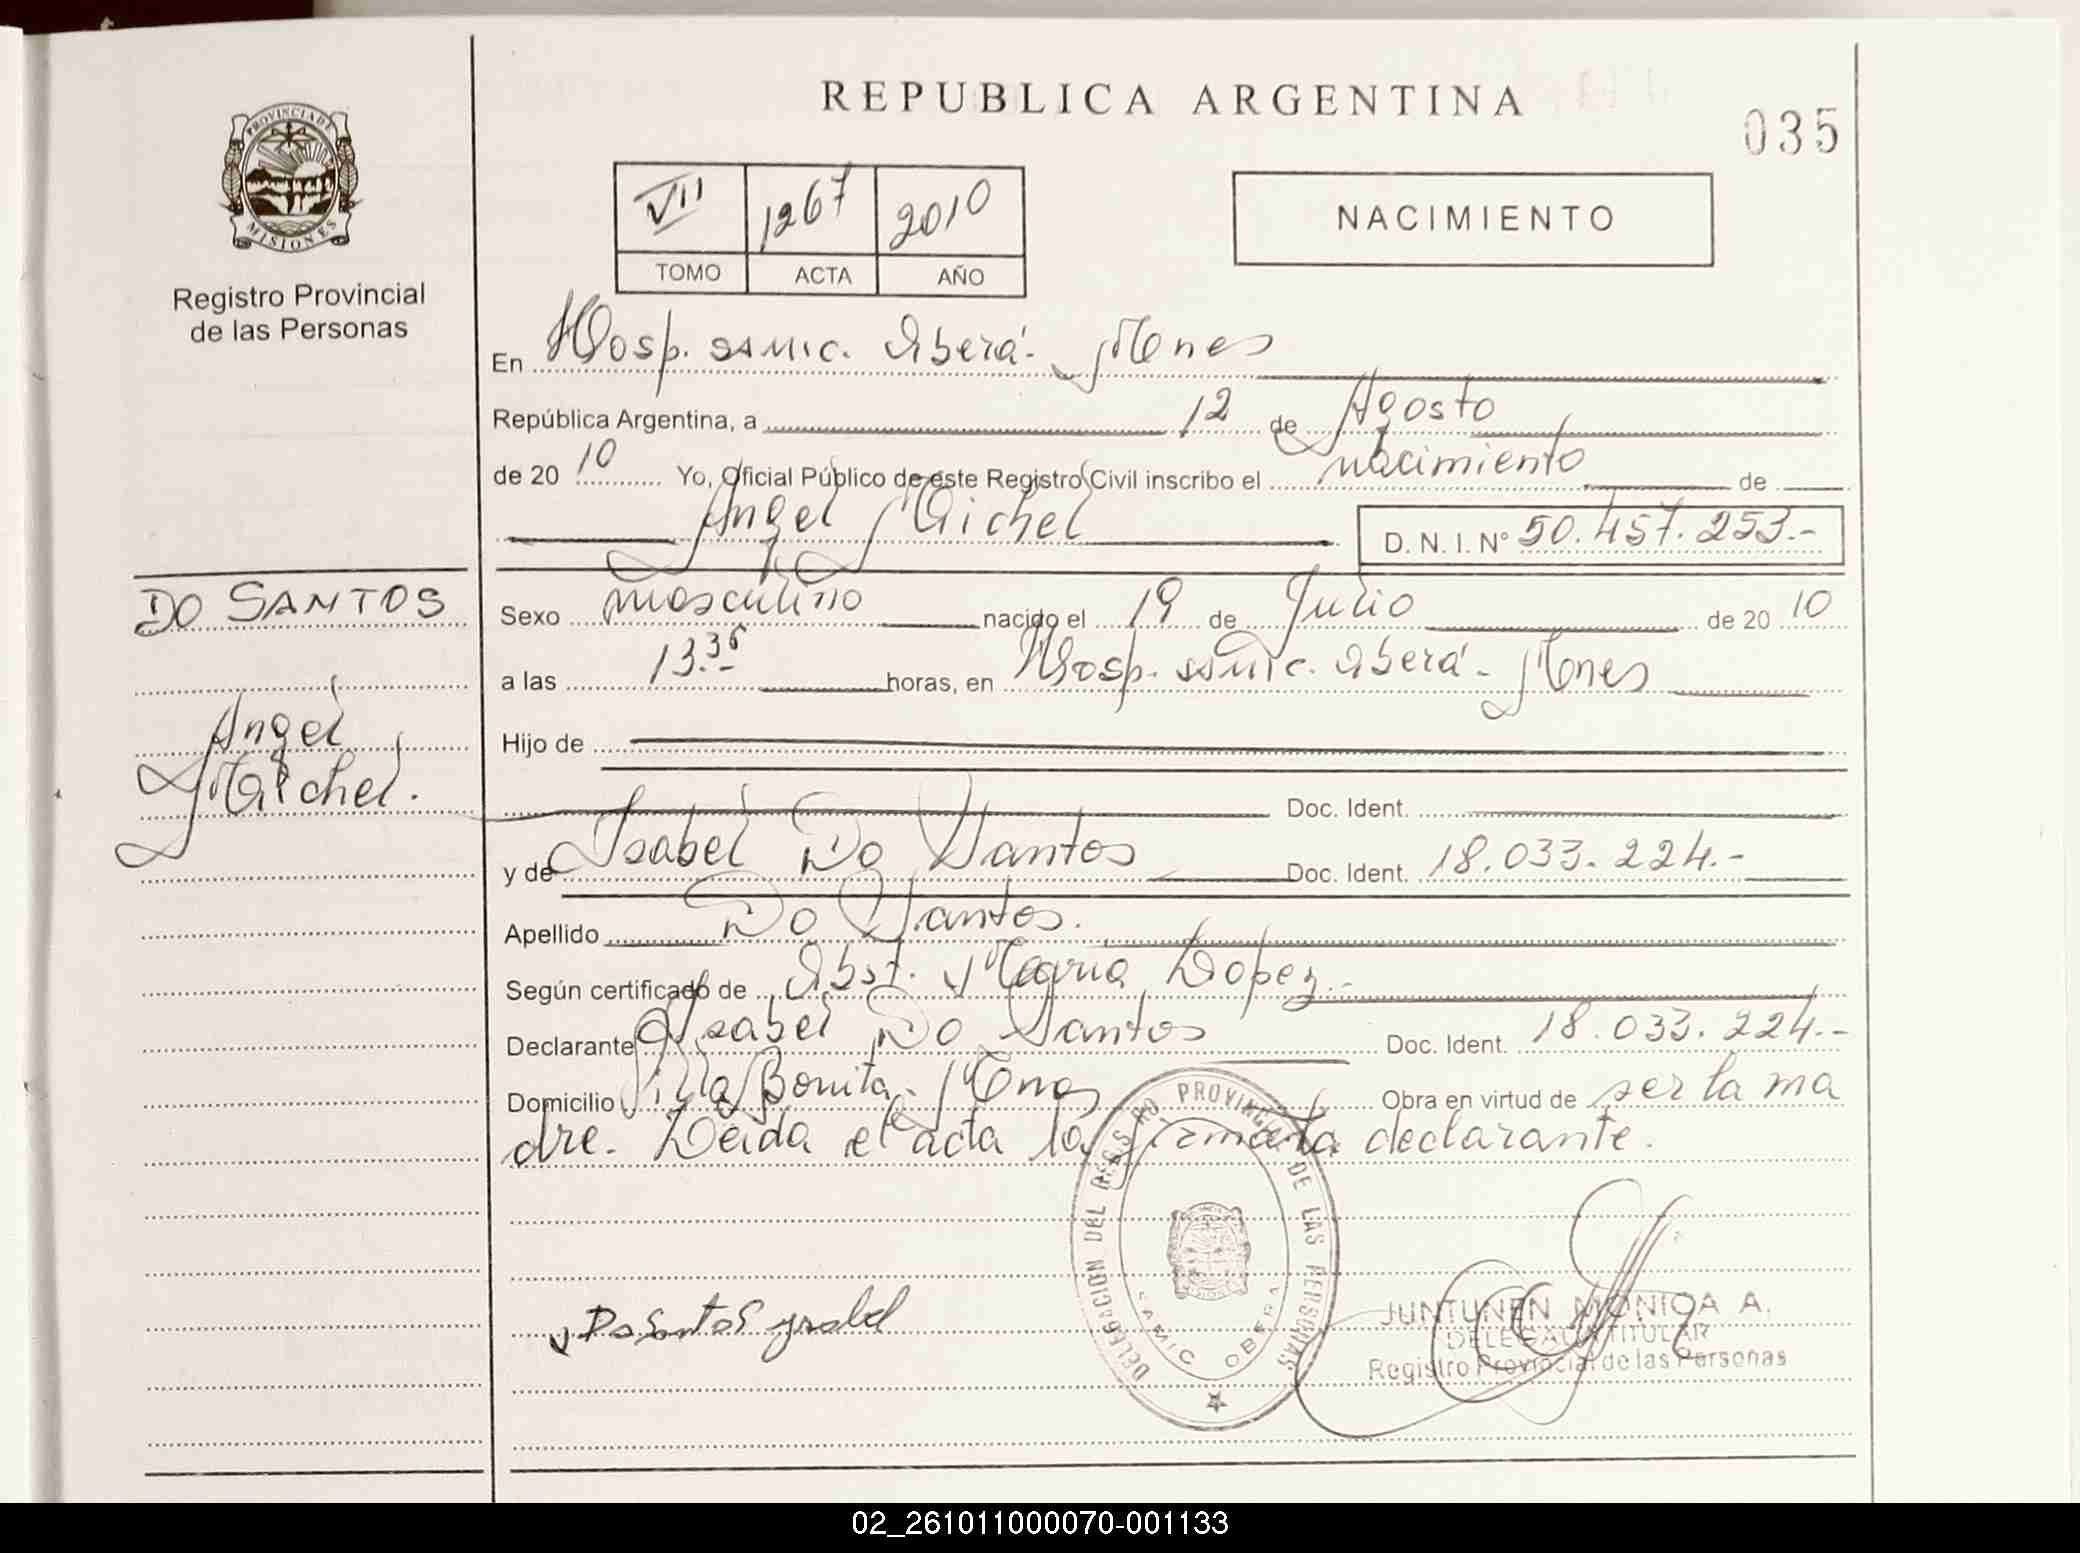 REPUBLICA ARGENTINA
035
PROVINCIA DE
MISIONES
Registro Provincial
de las Personas
VII 1267 2010
TOMO ACTA AÑO
NACIMIENTO
En Hosp. samic. Oberá - Mnes
República Argentina, a 12 de Agosto
de 20 10 Yo, Oficial Público de este Registro Civil inscribo el nacimiento de
Angel Maichel D. N. I. Nº 50.457.253.-
DO SANTOS
Angel
Maichel.
Sexo masculino nacido el 19 de Julio de 20 10
a las 13.36 horas, en Hosp. samic. Oberá - Mnes
Hijo de
Doc. Ident.
y de Isabel Do Santos Doc. Ident. 18.033.224.-
Apellido Do Santos.
Según certificado de Obst. Maria Lopez.-
Declarante Isabel Do Santos Doc. Ident. 18.033.224.-
Domicilio Villa Bonita - Mnes Obra en virtud de ser la ma
dre. Leida el acta la firmata declarante.
DELEGACION DEL REGISTRO PROVINCIAL DE LAS PERSONAS
SAMIC OBERA
MISIONES
Do Santos ysabel
JUNTUNEN MONICA A.
DELEGADA TITULAR
Registro Provincial de las Personas
02_261011000070-001133